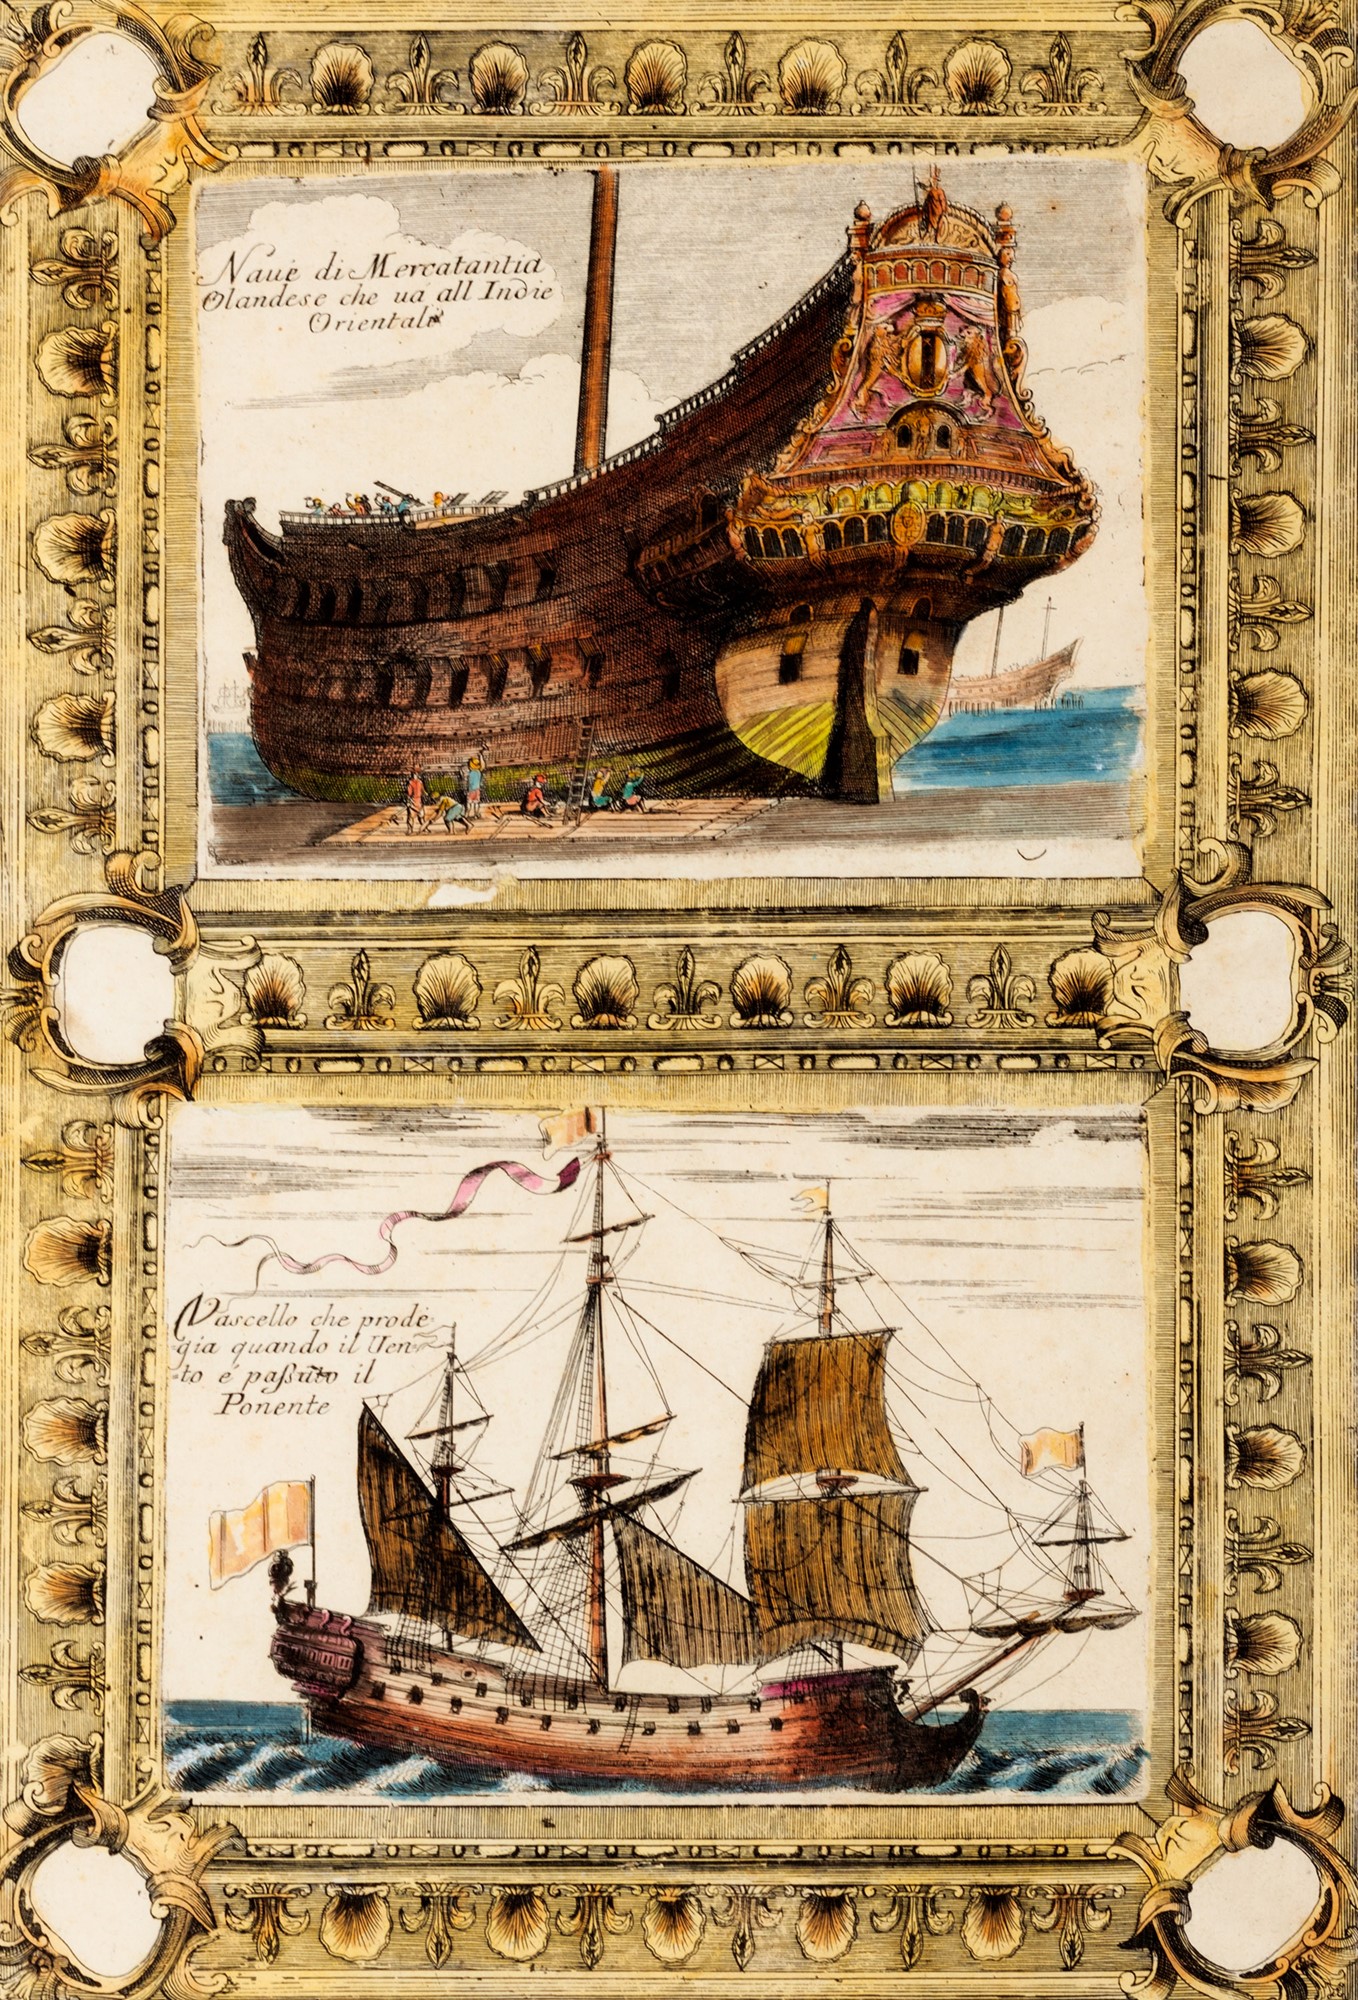 Naue di Mercatantia
Olandese che ua all Indie
Orientali
Vascello che prode
gia quando il Uen-
-to é paſsuto il
Ponente